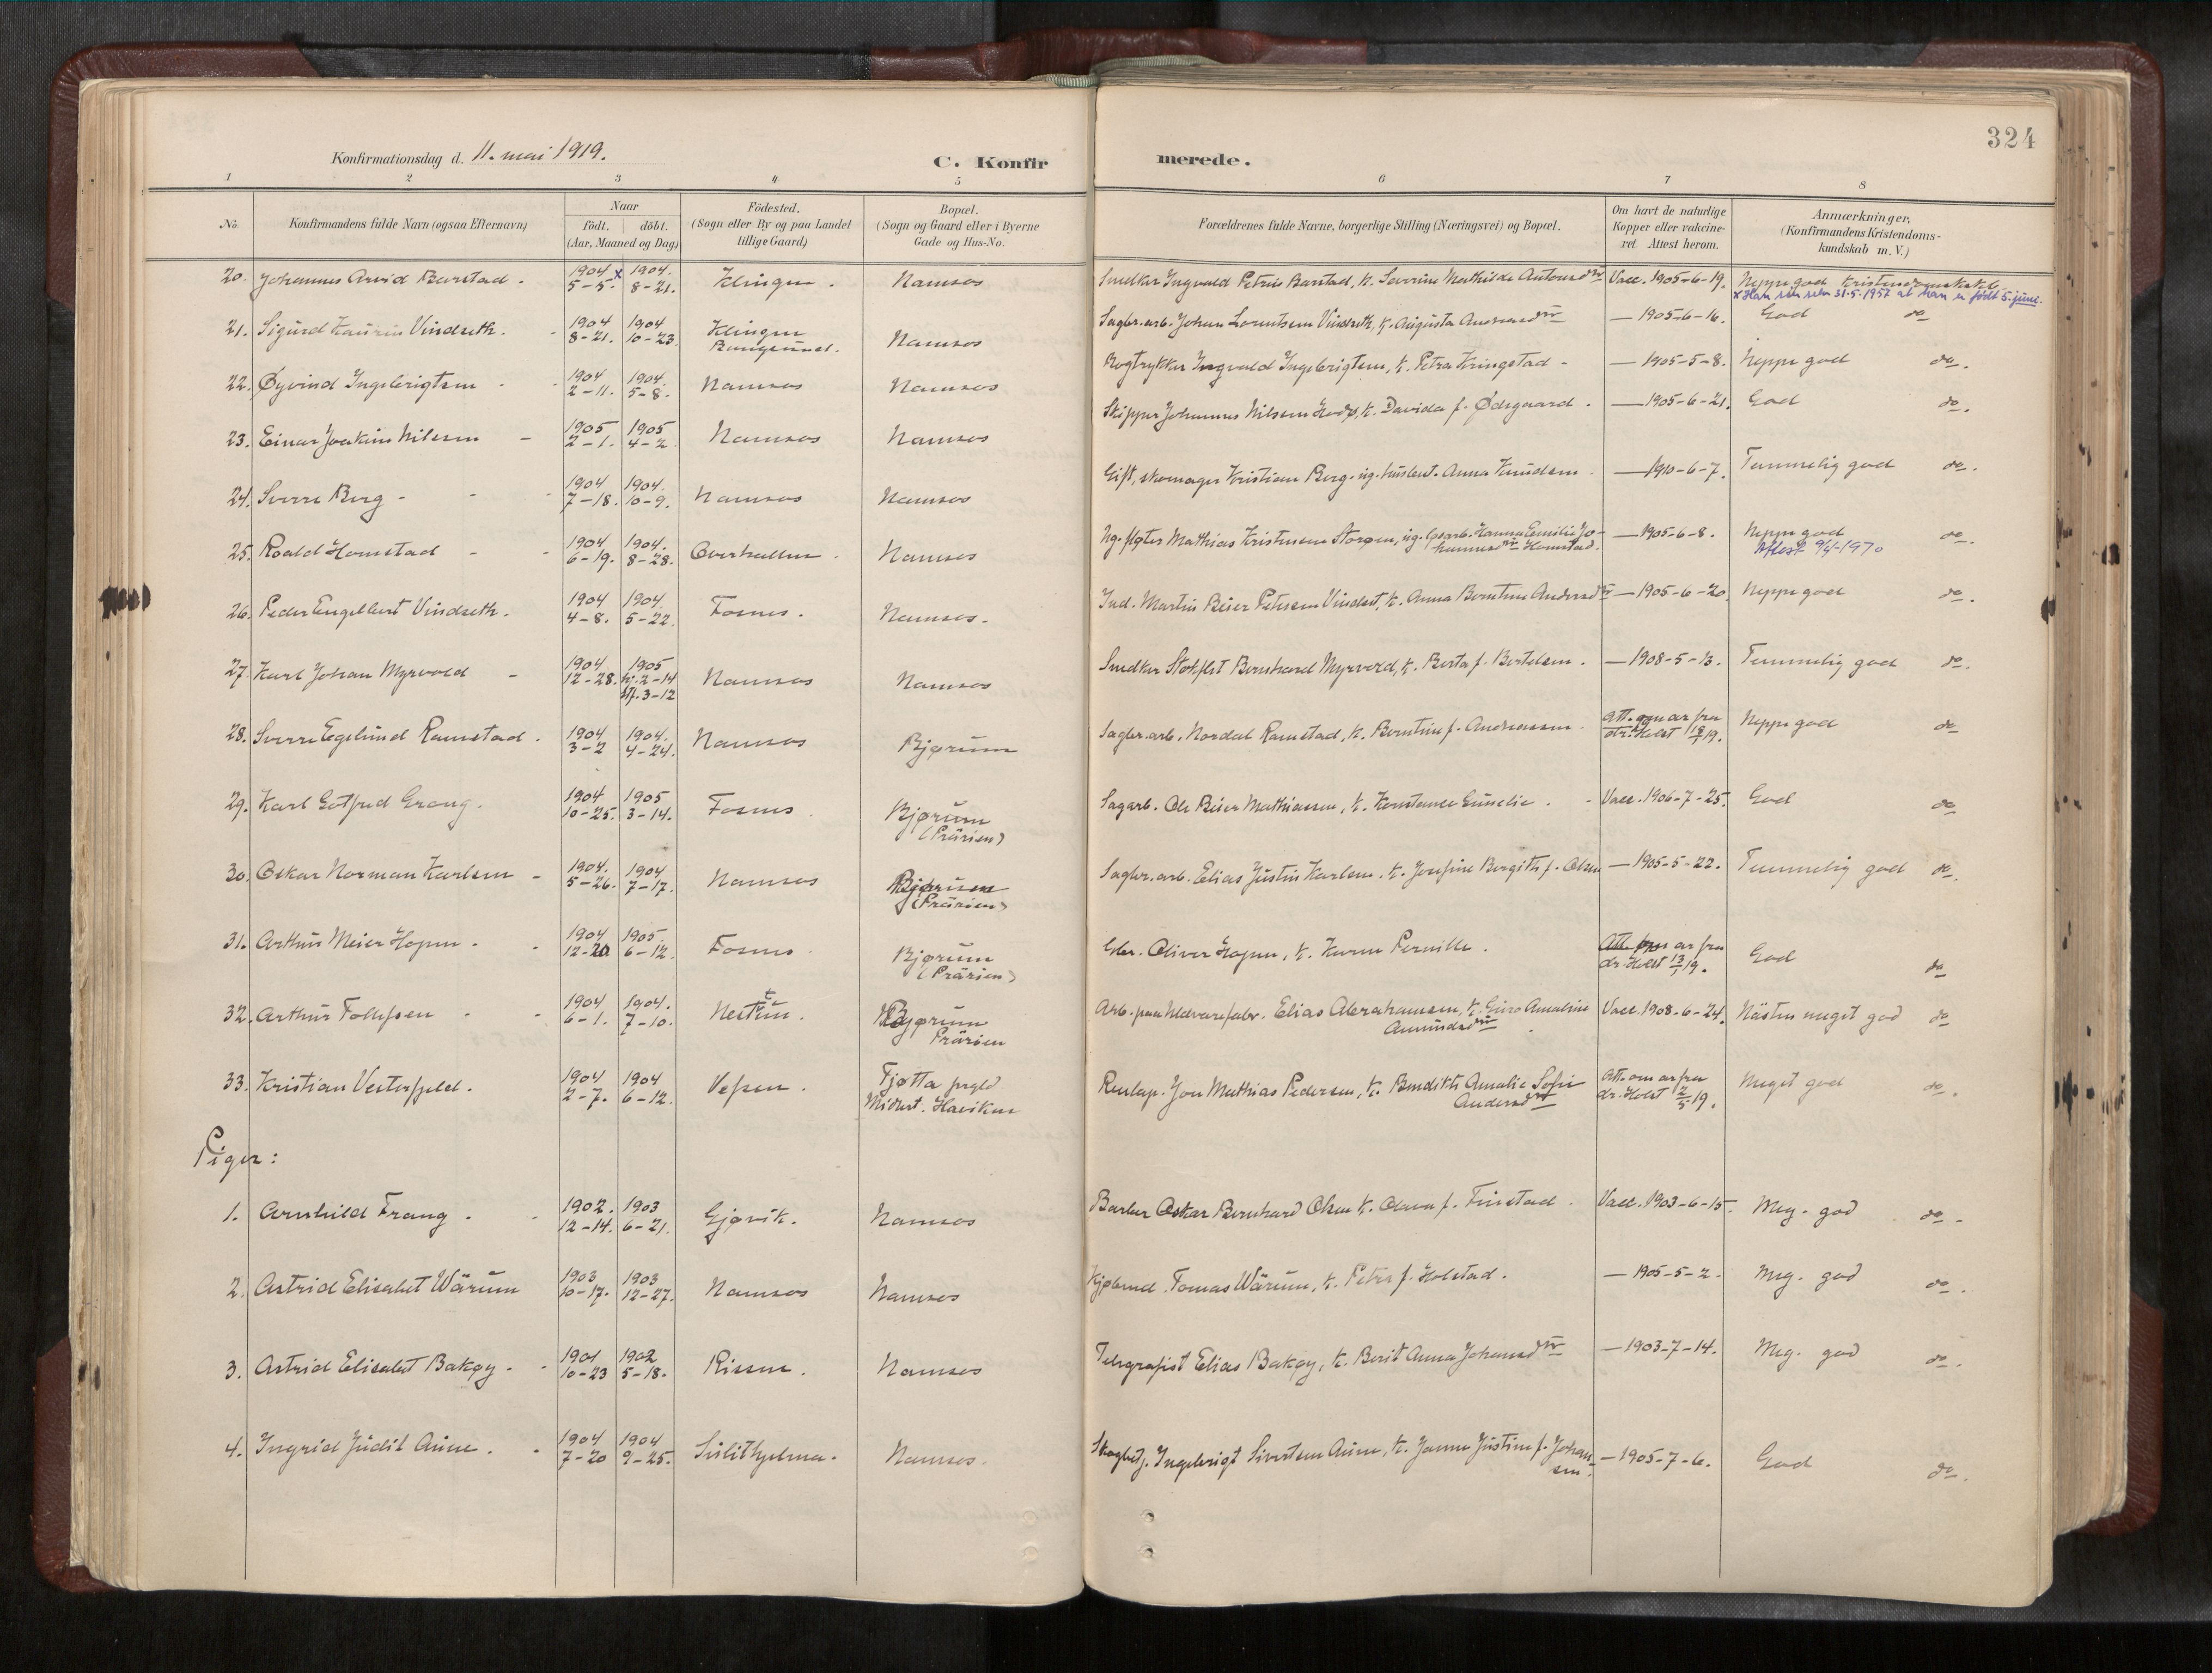 324
Konfirmationsdag d. 11. mai 1919.
C. Konfir
merede.
1 2 3 4 5 6 7 8
No.
Konfirmandens fulde Navn (ogsaa Efternavn)
Naar
födt. döbt.
(Aar, Maaned og Dag)
Födested.
(Sogn eller By og paa Landet
tillige Gaard)
Bopæl.
(Sogn og Gaard eller i Byerne
Gade og Hus-No.
Forældrenes fulde Navne, borgerlige Stilling (Næringsvei) og Bopæl.
Om havt de naturlige
Kopper eller vakcine-
ret Attest herom.
Anmærkninger,
(Konfirmandens Kristendoms-
kundskab m. V.)
20. Johannes Arvid Barstad. 1904 5-5. x 1904. 8-21. Klingen. Namsos Snedker Ingvald Petrus Barstad, k. Severine Mathilde Antonsdtr Vacc. 1905-6-19. Neppe god Kristendomskskb.
x Han sier selv 31-5-1957 at han er født 5. juni.
21. Sigurd Vindseth. 1904 8-21. 1904 10-23. Klingen Bangsund. Namsos Sagbr.arb. Johan Lorentsen Vindseth, k. Augusta Andreasdtr — 1905-6-16. God do
22. Øyvind Ingebrigtsen 1904 2-11. 1904. 5-8. Namsos Namsos Bogtrykker Ingvald Ingebrigtsen, k. Petra Kringstad - — 1905-5-8. Neppe god do.
23. Einar Joakim Nilssen 1905 2-1. 1905 4-2. Namsos Namsos Skipper Johannes Nilssen, k. Davida f. Ødegaard. — 1905-6-21. God do.
24. Sverre Berg 1904 7-18. 1904. 10-9. Namsos Namsos Gift, skomager Kristian Berg. ug. Anna Knudsen — 1910-6-7. Temmelig god do.
25. Roald Homstad 1904 6-19. 1904. 8-28. Overhallen. Namsos Ug. Mathias Kristensen, ug. Hanna Emilie Jo-
hannesdtr Homstad. — 1905-6-8. Neppe god do.
Attest 9/4-1970
26. Peder Engelbert Vindseth. 1904 4-8. 1904. 5-22. Fosnes. Namsos. Ind. Martin Beier Petersen Vindset, k. Anna Berntine Andersdtr — 1905-6-20. Neppe god do.
27. Karl Johan Myrvold 1904 12-28. 1905 hj. 2-14 st. 3-12 Namsos Namsos Snedker Bernhard Myrvold, k. Berta f. Bertelsen. — 1908-5-13. Temmelig god do.
28. Sverre Egelund Ramstad. 1904 3-2 1904. 4-24. Namsos Bjørum Sagbr.arb. Nordal Ramstad, k. Berntine f. Andreassen. Att. om ar fra
dr. Holst 19. Neppe god do
29. Karl Gotfred Grong. 1904 10-25. 1905 3-14. Fosnes Bjørum
(Prärien) Sagarb. Ole Beier Mathiassen, k. Konstance Gunelie. Vacc. 1906-7-25. God do
30. Oskar Norman Karlsen 1904. 5-26. 1904 7-17. Namsos Bjørum
(Prärien) Sagbr.arb. Elias Justin Karlsen. k. Josefine Bergith f. Olsen — 1905-5-22. Temmelig god do.
31. Arthur Meier Hopen 1904 12-20. 1905. 6-12. Fosnes Bjørum
(Prärien) Oliver Hopen, k. Karen Pernille. Att. om ar fra
dr. Holst 19. God do
32. Arthur Tollefsen 1904 6-1. 1904. 7-10. Bjørum
Prärien Arb. paa Uldvarefabr. Elias Abrahamsen, k. Guro Amaline
Amundsdtr Vacc. 1908-6-24. Nästen meget god do
33. Kristian Vesterfjeld. 1904 2-7. 1904 6-12. Vefsen. Tjøtta prgld
Midlert. Haviken Jon Mathias Pedersen, k. Bendikte Amalie Sofie
Andersdtr Att. om ar fra
dr. Holst 2/5 19. Meget god do.
Piger:
1. Arnhild Frang 1902. 12-14. 1903 6-21. Gjøvik. Namsos Barber Oskar Bernhard Olsen k. Olava f. Finstad. Vacc. 1903-6-15. Meg. god do.
2. Astrid Elisabet Wärum 1903 10-17. 1903 12-27. Namsos Namsos Kjøbmd. Tomas Wärum, k. Petra f. Holstad. — 1905-5-2. Meg. god do.
3. Astrid Elisabet Bakøy. 1901 10-23 1902 5-18. Rissen. Namsos Telegrafist Elias Bakøy, k. Berit Anna Johansdtr — 1903-7-14. Meg. god do.
4. Ingrid Judit Aune. 1904 7-20 1904 9-25. Sulithjelma. Namsos. Skogbetj. Ingebrigt Sivertsen Aune, k. Janna Justine f. Johan-
sen. — 1905-7-6. God do.